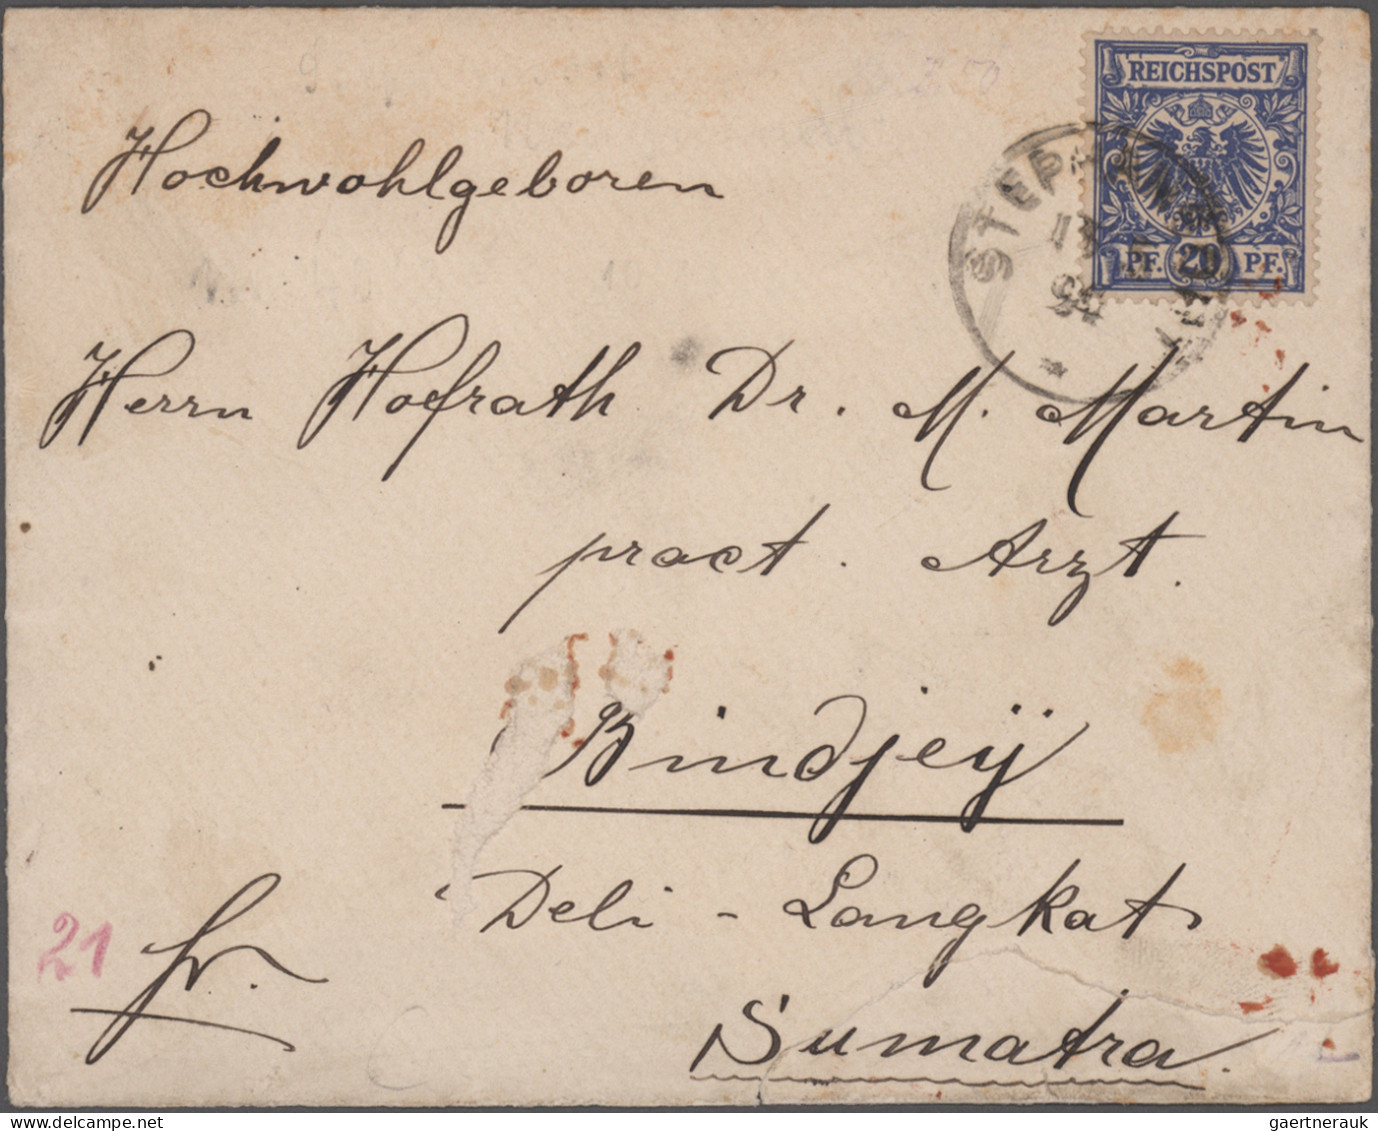 REICHSPOST
PF. 20 PF.
94
Hochwohlgeboren
Herrn Hofrath Dr. M. Martin
pract. Arzt.
Bindjeÿ
Deli - Langkat
Sumatra.
21
fr.
gaertnerauk